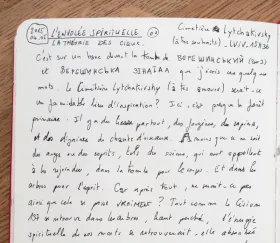 L'ENVOLÉE SPIRITUELLE
LA THÉORIE DES CIEUX.
Cimetière Lytchakivsky
(à tes souhaits). LVIV. 15H36
C'est sur un banc devant la tombe de ВЕРЕЩИНСЬКИЙ
et ВЕРЕЩИНСЬКА ЗІНАЇДА que j'écris ces quelques
mots. Le Cimetière Lytchakivsky (à tes amours) serait-ce
un formidable lieu d'inspiration? Ici, c'est presque la forêt
primaire. Il y a du lierre partout, des fougères, des sapins,
et des dizaines de chants d'oiseaux. À moins que ce ne soit
des anges ou des esprits, tels des sirènes, qui nous appellent
à les rejoindre, dans la tombe pour le corps. Et dans les
arbres pour l'esprit. Car après tout, ne serait-ce pas
ainsi que cela se passe VRAIMENT? Tout comme le
se retrouve dans les arbres, haut perché, l'énergie
spirituelle de nos morts se retrouverait, elle